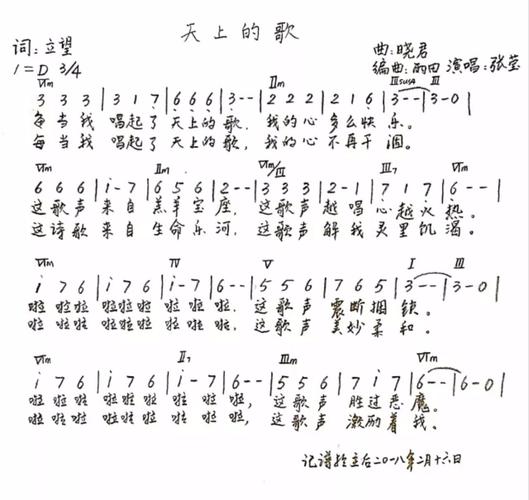 天上的歌
词:立望
曲:晓君
1=D 3/4
编曲:雨田 演唱:张莹
Ⅵm Ⅱm Ⅲsus4 Ⅲ
3 3 3 | 3 1 7 | 6 6 6 | 3 - - | 2 2 2 | 2 1 6 | 3 - - | 3 - 0 |
每当我 唱起了 天上的歌, 我的心 多么快乐。
每当我 唱起了 天上的歌, 我的心 不再干涸。
Ⅵm Ⅱm Ⅵm/Ⅲ Ⅲ7 Ⅵm
6 6 6 | i - 7 | 6 5 6 | 2 - - | 3 3 3 | 2 - 1 | 7 1 7 | 6 - - |
这歌声 来自 羔羊宝座, 这歌声 越唱 心越火热。
这诗歌 来自 生命乐河, 这歌声 解我 灵里饥渴。
Ⅵm Ⅳ Ⅴ Ⅰ Ⅲ
i 7 6 | i 7 6 | i - 7 | 6 - - | 5 5 6 | 7 6 5 | 3 - - | 3 - 0 |
啦啦啦 啦啦啦 啦啦啦, 这歌声 震断捆锁。
啦啦啦 啦啦啦 啦啦啦, 这歌声 美妙柔和。
Ⅵm Ⅱ7 Ⅲm Ⅵm
i 7 6 | i 7 6 | i - 7 | 6 - - | 5 5 6 | 7 i 7 | 6 - - | 6 - 0 |
啦啦啦 啦啦啦 啦啦啦, 这歌声 胜过恶魔。
啦啦啦 啦啦啦 啦啦啦, 这歌声 激励着我。
记谱于主后二〇一八年二月十六日